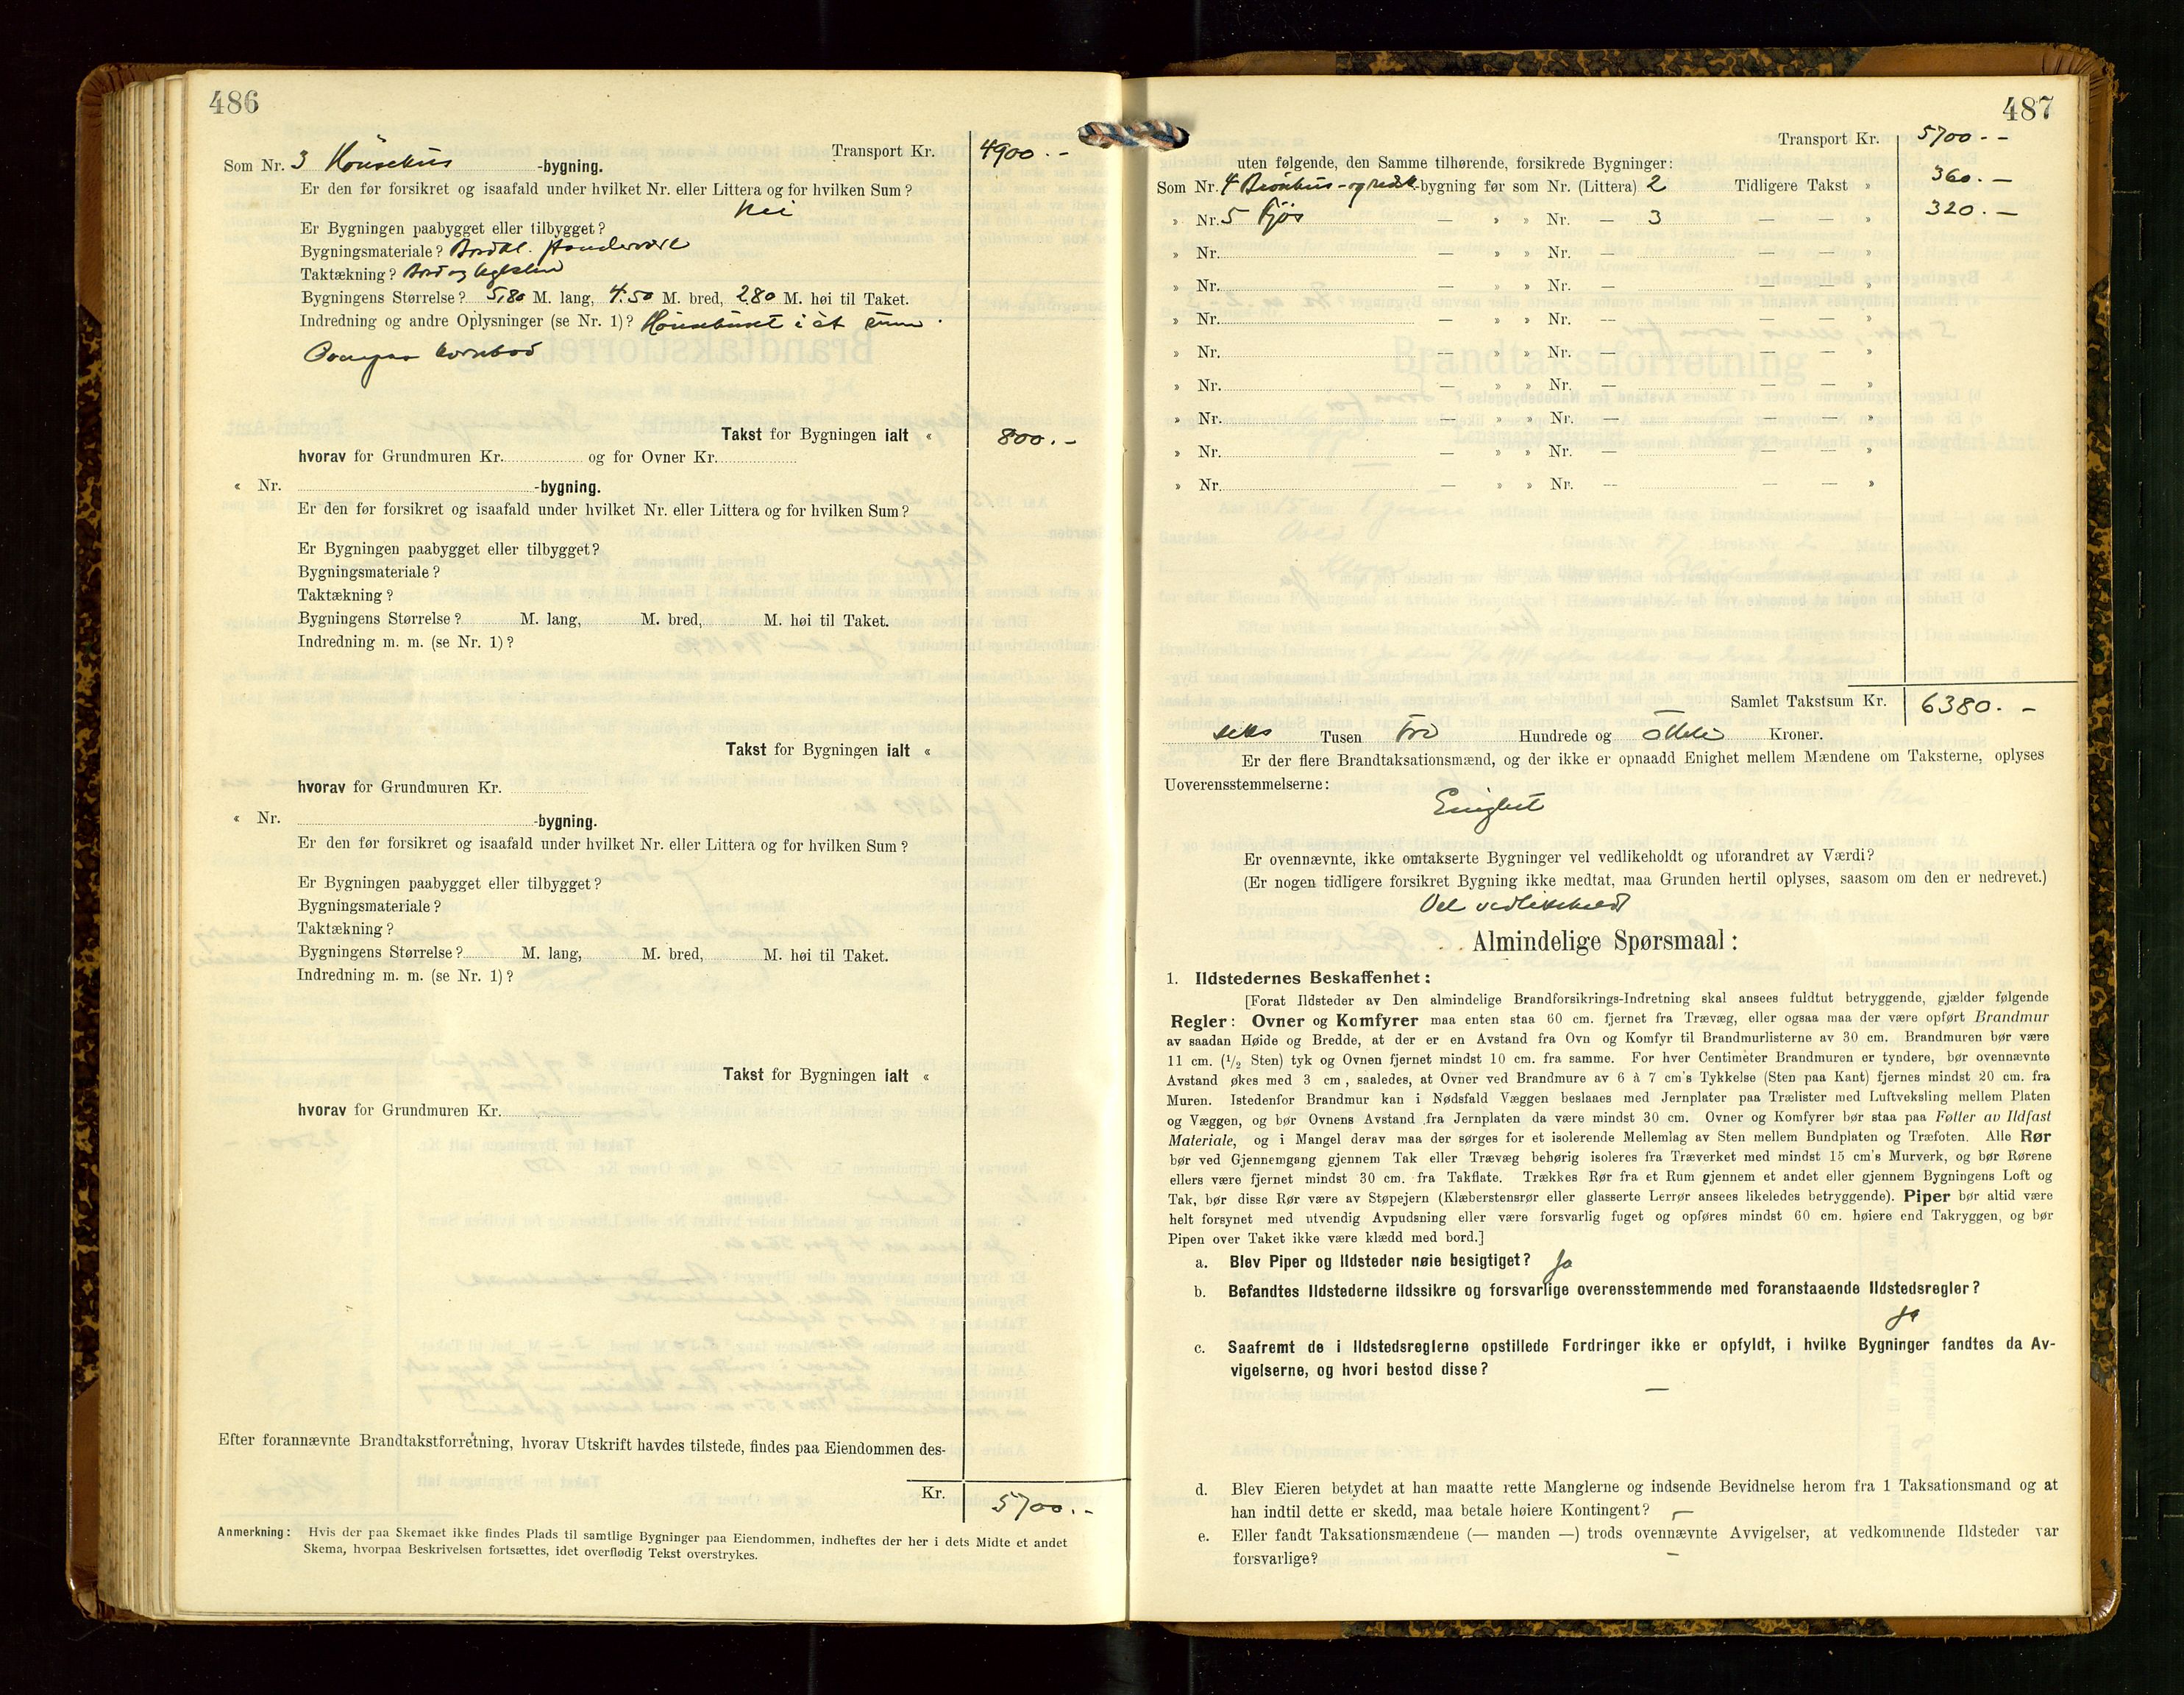 486
Transport Kr. 4900.-
Som Nr. 3 Hönsehus -bygning.
Er den før forsikret og isaafald under hvilket Nr. eller Littera og for hvilken Sum?
Nei
Er Bygningen paabygget eller tilbygget?
Bygningsmateriale? Bordkl.
Taktækning? Bord og teglsten
Bygningens Størrelse? 5,80 M. lang, 4.50 M. bred, 2.80 M. høi til Taket.
Indredning og andre Oplysninger (se Nr. 1)? Hönsehuset i et rum.
Ovenpaa kornbod
Takst for Bygningen ialt « 800.-
hvorav for Grundmuren Kr. og for Ovner Kr.
« Nr. -bygning.
Er den før forsikret og isaafald under hvilket Nr. eller Littera og for hvilken Sum?
Er Bygningen paabygget eller tilbygget?
Bygningsmateriale?
Taktækning?
Bygningens Størrelse? M. lang, M. bred, M. høi til Taket.
Indredning m. m. (se Nr. 1)?
Takst for Bygningen ialt «
hvorav for Grundmuren Kr.
« Nr. -bygning.
Er den før forsikret og isaafald under hvilket Nr. eller Littera og for hvilken Sum?
Er Bygningen paabygget eller tilbygget?
Bygningsmateriale?
Taktækning?
Bygningens Størrelse? M. lang, M. bred, M. høi til Taket.
Indredning m. m. (se Nr. 1)?
Takst for Bygningen ialt «
hvorav for Grundmuren Kr.
Efter forannævnte Brandtakstforretning, hvorav Utskrift havdes tilstede, findes paa Eiendommen des-
Kr. 5700.-
Anmerkning: Hvis der paa Skemaet ikke findes Plads til samtlige Bygninger paa Eiendommen, indheftes der her i dets Midte et andet
Skema, hvorpaa Beskrivelsen fortsættes, idet overflødig Tekst overstrykes.
487
Transport Kr. 5700.-
uten følgende, den Samme tilhørende, forsikrede Bygninger:
Som Nr. 4 -bygning før som Nr. (Littera) 2 Tidligere Takst » 360.-
» Nr. 5 Fjøs — » » Nr. — 3 — — » 320.-
» Nr. — » » Nr. — — — »
» Nr. — » » Nr. — — — »
» Nr. — » » Nr. — — — »
» Nr. — » » Nr. — — — »
» Nr. — » » Nr. — — — »
» Nr. — » » Nr. — — — »
» Nr. — » » Nr. — — — »
» Nr. — » » Nr. — — — »
Samlet Takstsum Kr. 6380.-
seks Tusen tre Hundrede og otteti Kroner.
Er der flere Brandtaksationsmænd, og der ikke er opnaadd Enighet mellem Mændene om Taksterne, oplyses
Uoverensstemmelserne:
Enighet
Er ovennævnte, ikke omtakserte Bygninger vel vedlikeholdt og uforandret av Værdi?
(Er nogen tidligere forsikret Bygning ikke medtat, maa Grunden hertil oplyses, saasom om den er nedrevet.)
Vel vedlikehold
Almindelige Spørsmaal:
1. Ildstedernes Beskaffenhet:
[Forat Ildsteder av Den almindelige Brandforsikrings-Indretning skal ansees fuldtut betryggende, gjælder følgende
Regler: Ovner og Komfyrer maa enten staa 60 cm. fjernet fra Trævæg, eller ogsaa maa der være opført Brandmur
av saadan Høide og Bredde, at der er en Avstand fra Ovn og Komfyr til Brandmurlisterne av 30 cm. Brandmuren bør være
11 cm. (1/2 Sten) tyk og Ovnen fjernet mindst 10 cm. fra samme. For hver Centimeter Brandmuren er tyndere, bør ovennævnte
Avstand økes med 3 cm, saaledes, at Ovner ved Brandmure av 6 à 7 cm's Tykkelse (Sten paa Kant) fjernes mindst 20 cm. fra
Muren. Istedenfor Brandmur kan i Nødsfald Væggen beslaaes med Jernplater paa Trælister med Luftveksling mellem Platen
og Væggen, og bør Ovnens Avstand fra Jernplaten da være mindst 30 cm. Ovner og Komfyrer bør staa paa Føtter av Ildfast
Materiale, og i Mangel derav maa der sørges for et isolerende Mellemlag av Sten mellem Bundplaten og Træfoten. Alle Rør
bør ved Gjennemgang gjennem Tak eller Trævæg behørig isoleres fra Træverket med mindst 15 cm's Murverk, og bør Rørene
ellers være fjernet mindst 30 cm. fra Takflate. Trækkes Rør fra et Rum gjennem et andet eller gjennem Bygningens Loft og
Tak, bør disse Rør være av Støpejern (Klæberstensrør eller glasserte Lerrør ansees likeledes betryggende). Piper bør altid være
helt forsynet med utvendig Avpudsning eller være forsvarlig fuget og opføres mindst 60 cm. høiere end Takryggen, og bør
Pipen over Taket ikke være klædd med bord.]
a. Blev Piper og Ildsteder nøie besigtiget? Ja
b. Befandtes Ildstederne ildssikre og forsvarlige overensstemmende med foranstaaende Ildstedsregler?
Ja
c. Saafremt de i Ildstedsreglerne opstillede Fordringer ikke er opfyldt, i hvilke Bygninger fandtes da Av-
vigelserne, og hvori bestod disse?
—
d. Blev Eieren betydet at han maatte rette Manglerne og indsende Bevidnelse herom fra 1 Taksationsmand og at
han indtil dette er skedd, maa betale høiere Kontingent? —
e. Eller fandt Taksationsmændene (— manden —) trods ovennævnte Avvigelser, at vedkommende Ildsteder var
forsvarlige? —